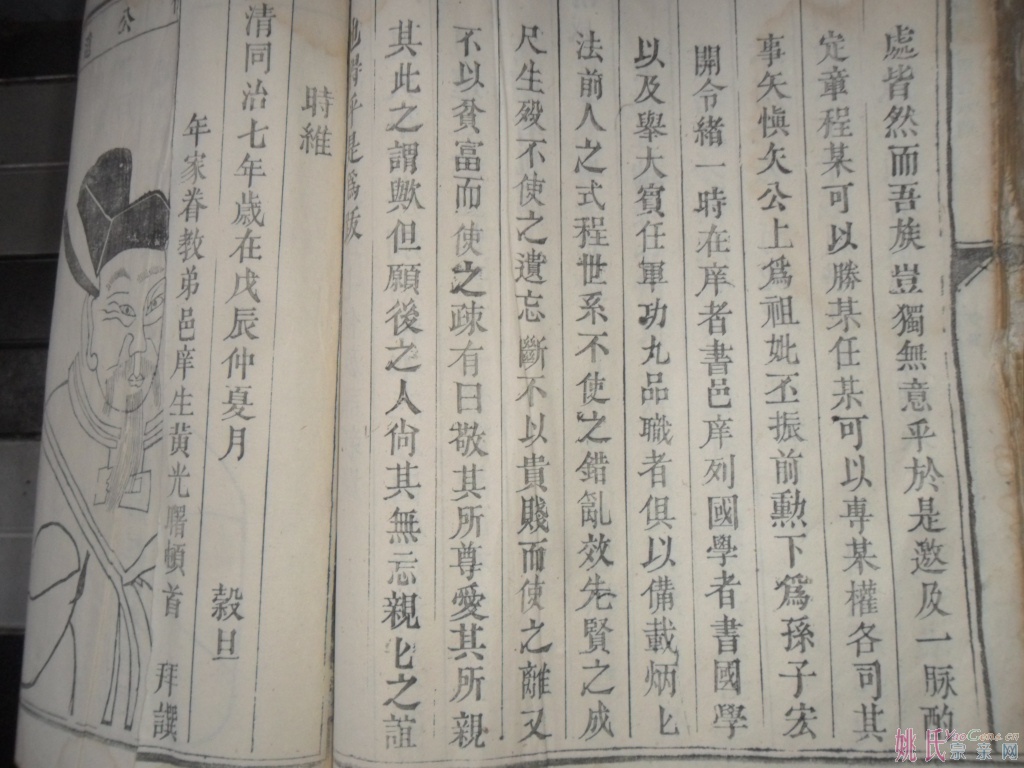 處皆然而吾族豈獨無意乎於是邀及一脈酌
定章程某可以勝某任某可以專某權各司其
事矢慎矢公上爲祖妣丕振前勳下爲孫子宏
開令緒一時在庠者書邑庠列國學者書國學
以及舉大賓任軍功九品職者俱以備載炳匕
法前人之式程世系不使之錯亂效先賢之成
尺生殁不使之遺忘斷不以貴賤而使之離又
不以貧富而使之疎有曰敬其所尊愛其所親
其此之謂歟但願後之人尙其無忘親匕之誼
時維
清同治七年歲在戊辰仲夏月 穀旦
年家眷教弟邑庠生黃光曙頓首 拜譔
公
姚氏宗亲网